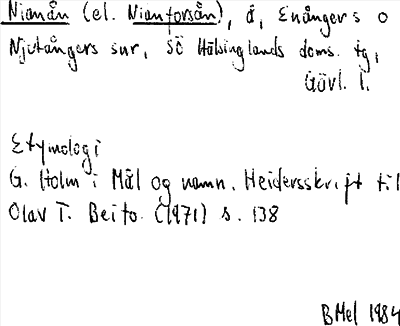 Nianån (el. Nianforsån), å, Enångers o
Njutångers snr, SÖ Hälsinglands doms. tg,
Gävl. l.
Etymologi
G. Holm i Mål og namn. Heidersskrift til
Olav T. Beito. (1971) s. 138
BMel 1984